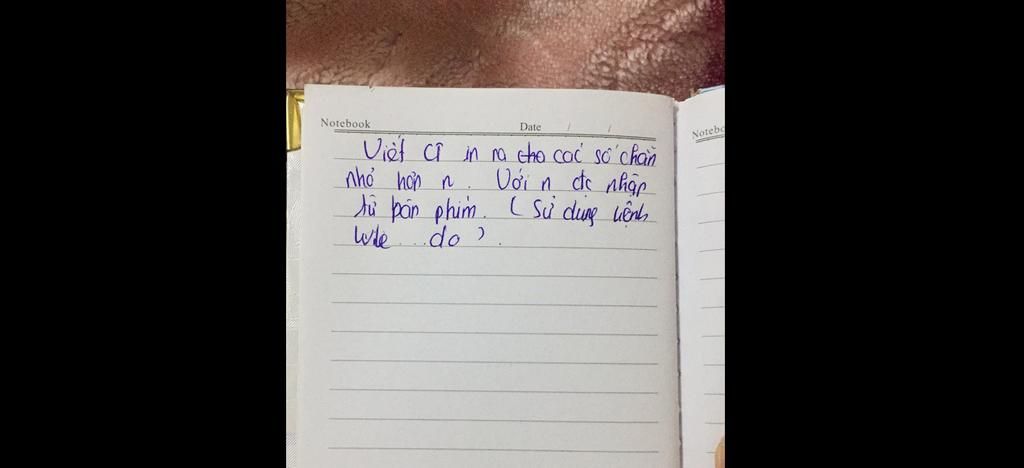 Notebook
Date / /
Viết CT in ra cho các số chẵn
nhỏ hơn n. Với n đc nhập
từ bàn phím. (Sử dụng lệnh
while...do).
Notebo